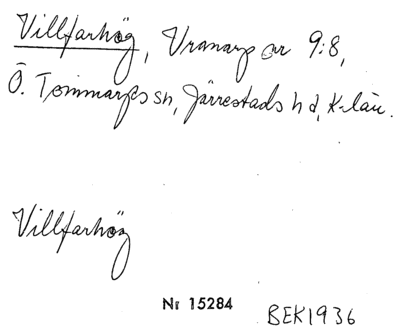 Villfarhög, Vranarp nr 9:8,
Ö. Tommarps sn, Järrestads hd, K-län.
Villfarhög
Nr 15284
BEK1936